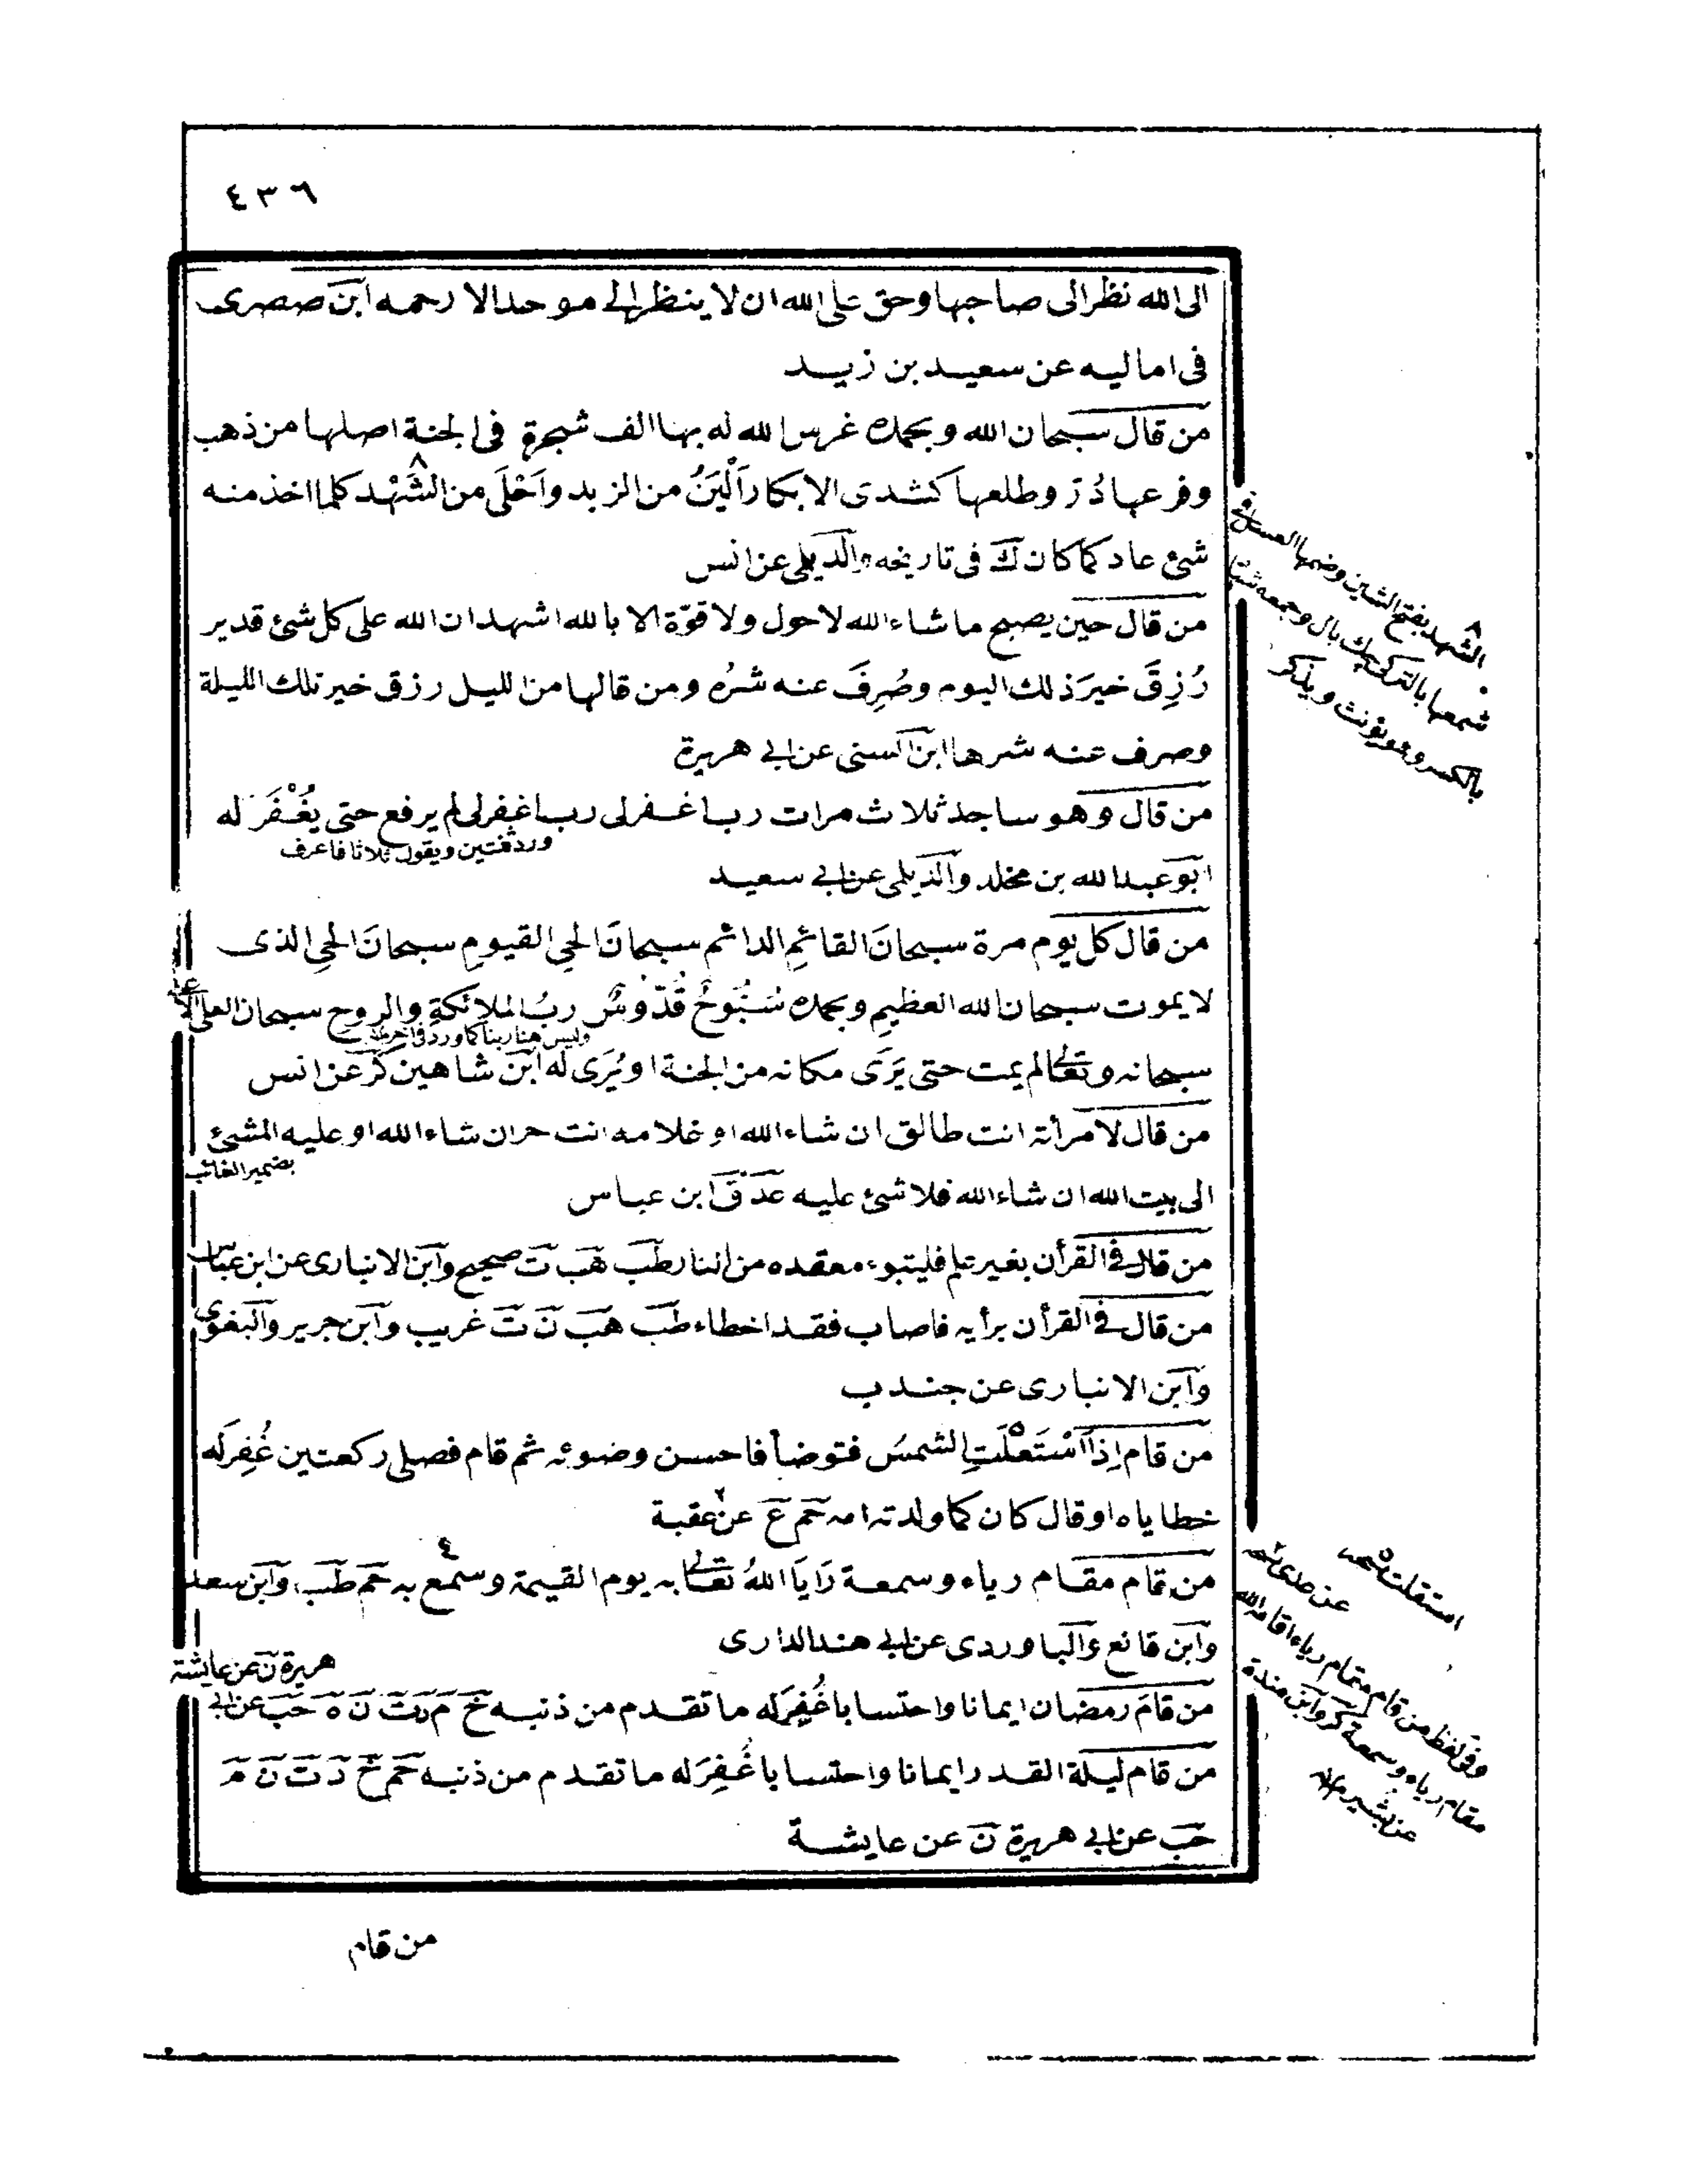 ٤٣٦
الى الله نظر الى صاحبها وحق على الله ان لا ينظر الى موحد الا رحمه ابن صصرى
فى اماليه عن سعيد بن زيد
من قال سبحان الله وبحمده غرس الله له بها الف شجرة فى الجنة اصلها من ذهب
وفرعها دُرّ وطلعها كثدى الابكار اَلْيَنُ من الزبد واَحْلَى من الشَهْد كلما اخذ منه
شئ عاد كما كان ك فى تاريخه والديلمى عن انس
من قال حين يصبح ما شاء الله لا حول ولا قوّة الا بالله اشهد ان الله على كل شئ قدير
رُزِقَ خيرَ ذلك اليوم وصُرِفَ عنه شرُه ومن قالها من الليل رزق خير تلك الليلة
وصرف عنه شرها ابن السنى عن ابى هريرة
من قال وهو ساجد ثلاث مرات رب اغفرلى رب اغفرلى لم يرفع حتى يُغْفَرَ له
ورد ثنتين ويقول ثلاثا فاعرف
ابو عبد الله بن مخلد والديلمى عن ابى سعيد
من قال كل يوم مرة سبحانَ القائمِ الدائم سبحانَ الحىِ القيومِ سبحانَ الحىِ الذى
لا يموت سبحان الله العظيمِ وبحمده سُبُّوحٌ قُدّوسٌ ربُ الملائكةِ والروح سبحان العلى الاعلى
وليس هنا ربنا كما ورد فى اخر
سبحانه وتعالى لم يمت حتى يَرَى مكانه من الجنة او يُرَى له ابن شاهين كر عن انس
من قال لامرأته انت طالق ان شاء الله او غلامه انت حر ان شاء الله او عليه المشئ
بضمير الغائب
الى بيت الله ان شاء الله فلا شئ عليه عد ق ابن عباس
من قال فى القرأن بغير علم فليتبوء مقعده من النار طب هب ت صحيح وابن الانبارى عن ابن عباس
من قال فى القرأن برأيه فاصاب فقد اخطاء طب هب ن ت غريب وابن جرير والبغوى
وابن الانبارى عن جندب
من قام اِذَا اسْتَعْلَتِ الشمسُ فتوضأ فاحسن وضوئه ثم قام فصلى ركعتين غُفِرَ له
خطاياه او قال كان كما ولدته امه حم ع عن عقبة
من قام مقام رياء وسمعة رَايَا اللهُ تعالى به يوم القيمة وسمع به حم طب وابن سعد
وابن قانع والباوردى عن ابى هند الدارى
هريرة ن عن عايشة
من قامَ رمضان ايمانا واحتسابا غُفِرَ له ما تقدم من ذنبه خ م د ت ن ه حب عن ابى
من قام ليلة القدر ايمانا واحتسابا غُفِرَ له ما تقدم من ذنبه حم خ د ت ن م
حب عن ابى هريرة ن عن عايشة
من قام
الشهد بفتح الشين وضمها العسل فى
شمعها بالتركى بال وجمعه شهاد
بالكسر وهو يؤنث ويذكر
استقلت نسخه
عن عدى نسخه
وفى لفظ من قام مقام رياء اقامه الله
مقام رياء وسمعة كر وابن مندة
عن بشير